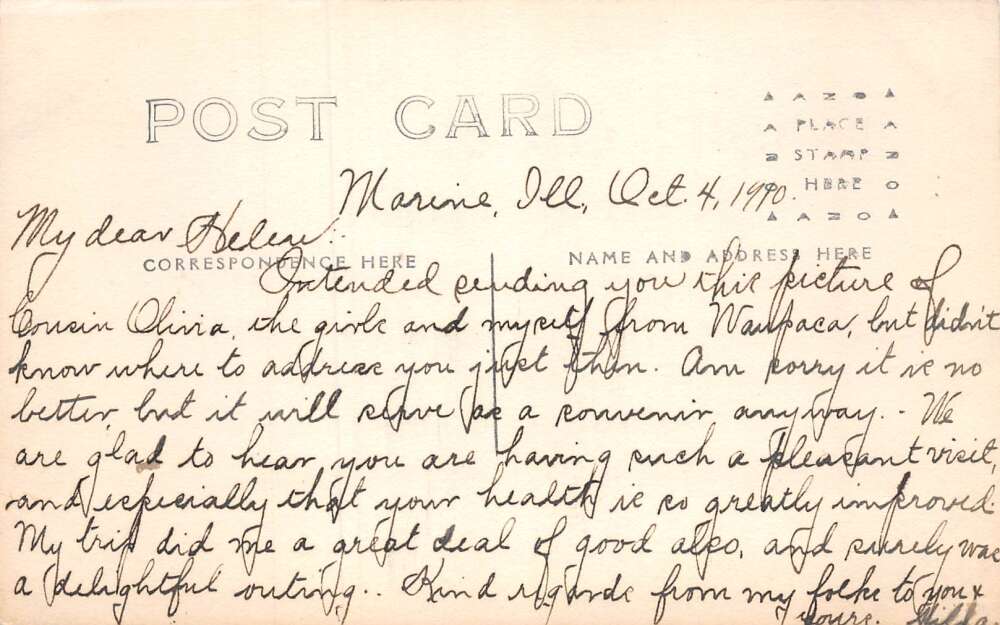 POST CARD
AZO
PLACE
STAMP
HERE
AZO
Marine, Ill, Oct. 4, 1910.
My dear Helen:
CORRESPONDENCE HERE
NAME AND ADDRESS HERE
Intended sending you this picture of
Cousin Olivia, the girls and myself from Waupaca, but didn't
know where to address you just then. Am sorry it is no
better, but it will serve as a souvenir anyway. - We
are glad to hear you are having such a pleasant visit,
and especially that your health is so greatly improved.
My trip did me a great deal of good also, and surely was
a delightful outing.. Kind regards from my folks to you &
yours. Hilda.